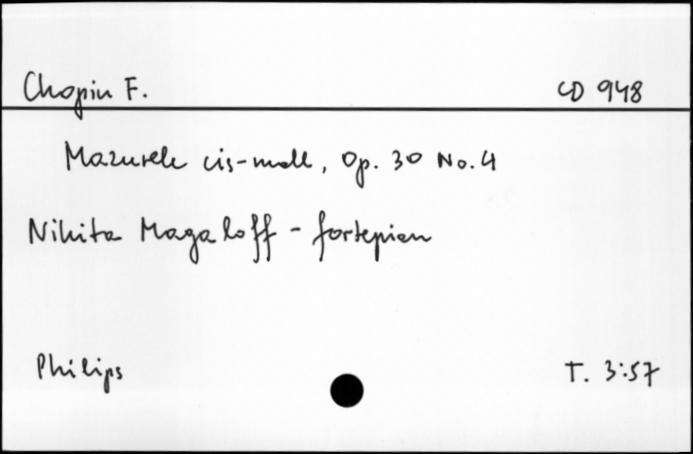 Chopin F. CD 948
Mazurek cis-moll, Op. 30 No. 4
Nikita Magaloff - fortepian
Philips T. 3:57